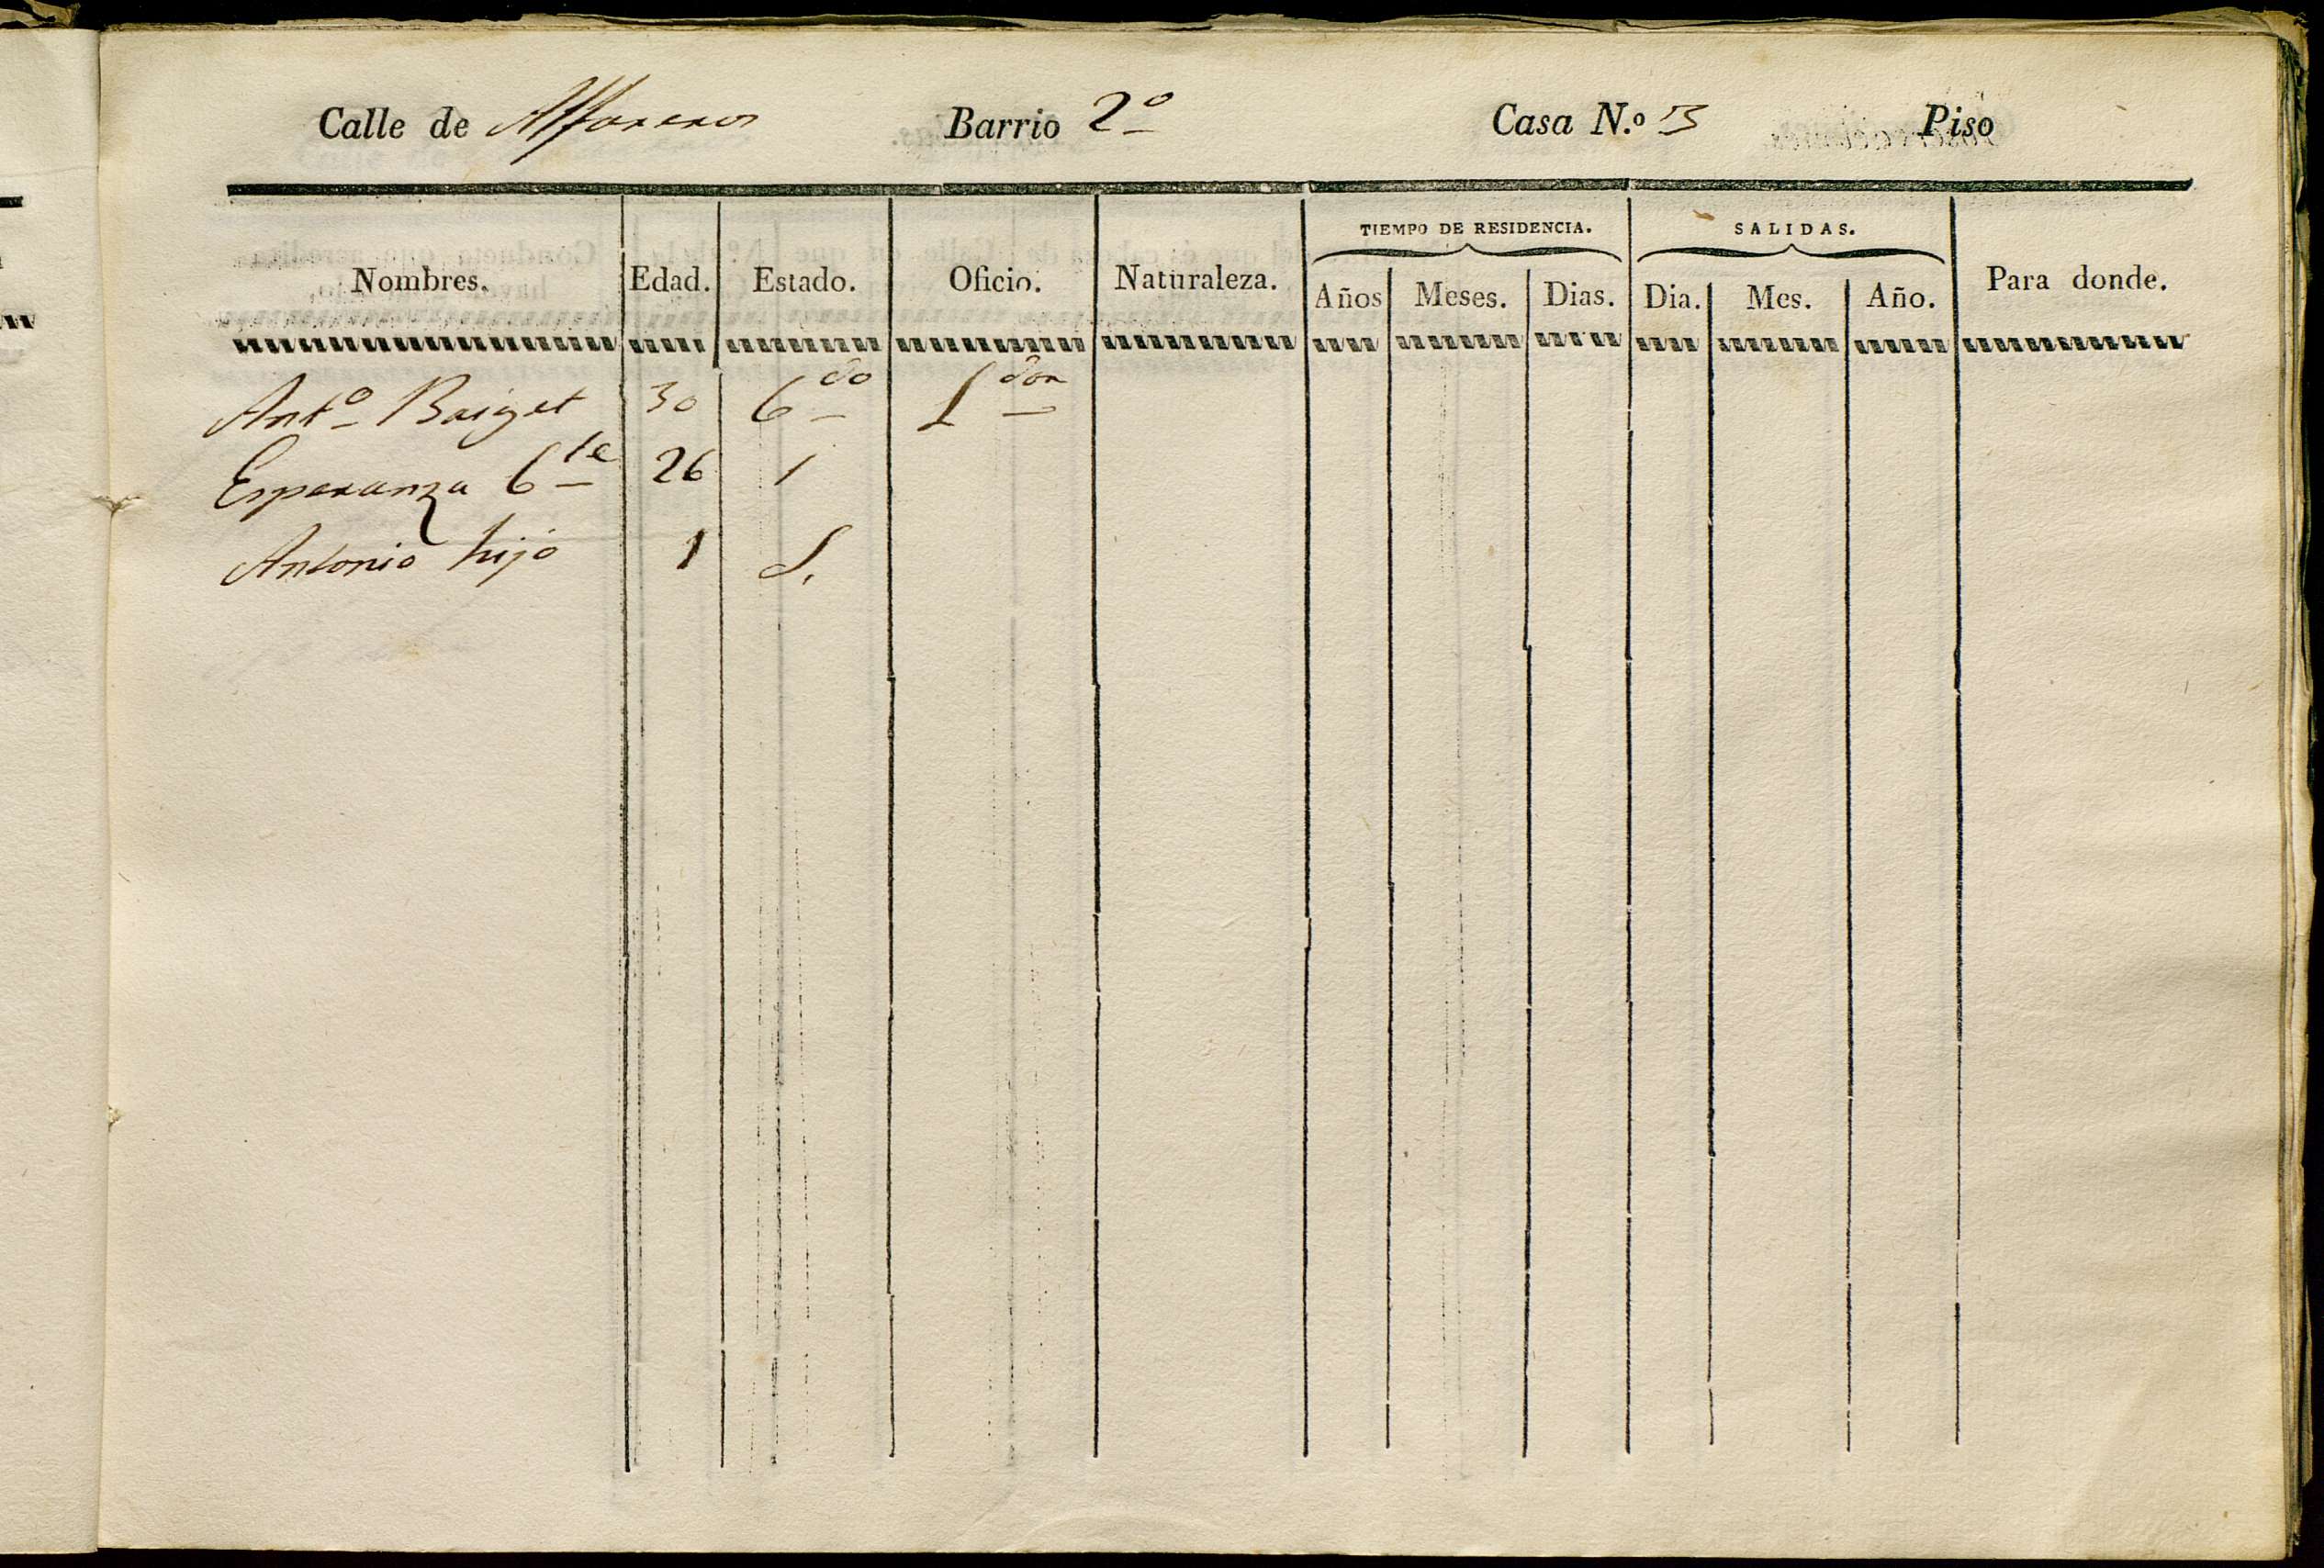 Calle de Alfareros Barrio 2º Casa N.º 3 Piso
TIEMPO DE RESIDENCIA. SALIDAS.
Nombres. Edad. Estado. Oficio. Naturaleza. Años Meses. Dias. Dia. Mes. Año. Para donde.
Antº Baiget 30 Cdo Ldor
Esperanza Cte 26 /
Antonio hijo 1 S.